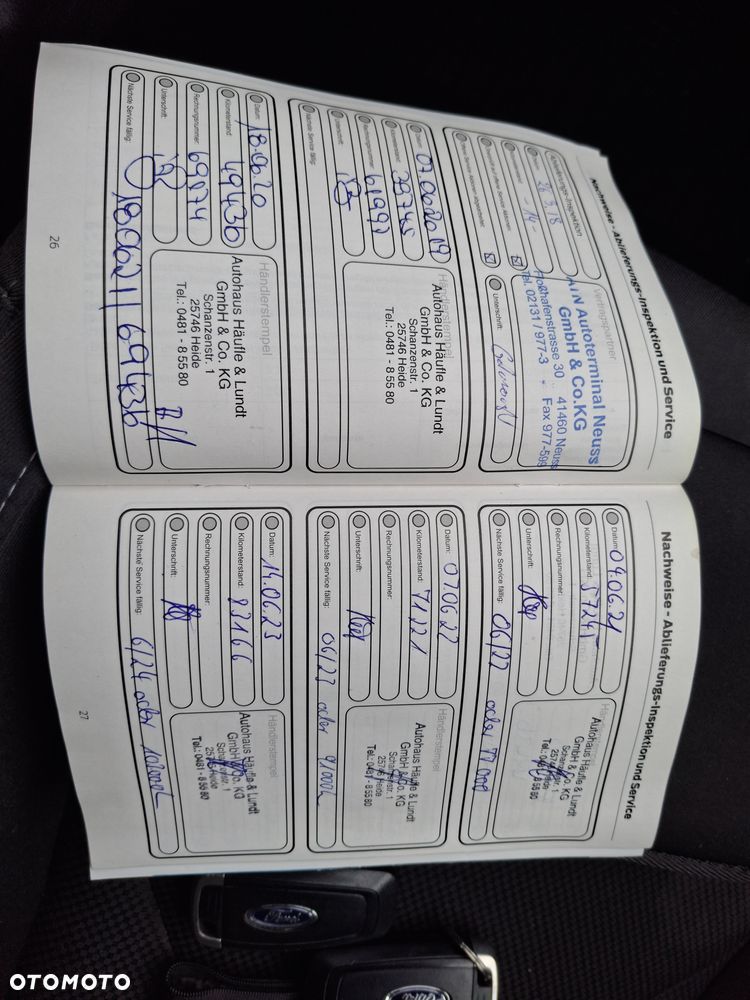 Nachweise - Ablieferungs-Inspektion und Service
Ablieferungs-Inspektion
Datum: 26.9.18
Kilometerstand: -14-
Vertragspartner
AtN Autoterminal Neuss
GmbH & Co.KG
Floßhafenstrasse 30 41460 Neuss
Tel. 02131 / 977-3 - Fax 977-599
Unterschrift:
Datum: 07.06.2019
Kilometerstand:
Rechnungsnummer: 61992
Unterschrift:
Nächste Service fällig:
Händlerstempel
Autohaus Häufle & Lundt
GmbH & Co. KG
Schanzenstr. 1
25746 Heide
Tel.: 0481 - 8 55 80
Datum: 18.06.20
Kilometerstand: 49436
Rechnungsnummer: 69074
Unterschrift:
Nächste Service fällig: 18.06.21 / 69436
Händlerstempel
Autohaus Häufle & Lundt
GmbH & Co. KG
Schanzenstr. 1
25746 Heide
Tel.: 0481 - 8 55 80
26
Nachweise - Ablieferungs-Inspektion und Service
Datum: 09.06.21
Kilometerstand:
Rechnungsnummer:
Unterschrift:
Nächste Service fällig: 06/22 oder 77000
Händlerstempel
Autohaus Häufle & Lundt
GmbH & Co. KG
Schanzenstr. 1
25746 Heide
Tel.: 0481 - 8 55 80
Datum: 07.06.22
Kilometerstand: 71221
Rechnungsnummer:
Unterschrift:
Nächste Service fällig: 06/23 oder 91000
Händlerstempel
Autohaus Häufle & Lundt
GmbH & Co. KG
Schanzenstr. 1
25746 Heide
Tel.: 0481 - 8 55 80
Datum: 14.06.23
Kilometerstand: 83166
Rechnungsnummer:
Unterschrift:
Nächste Service fällig: 6/24 oder
Händlerstempel
Autohaus Häufle & Lundt
GmbH & Co. KG
Schanzenstr. 1
25746 Heide
Tel.: 0481 - 8 55 80
27
Ford
Ford
OTOMOTO